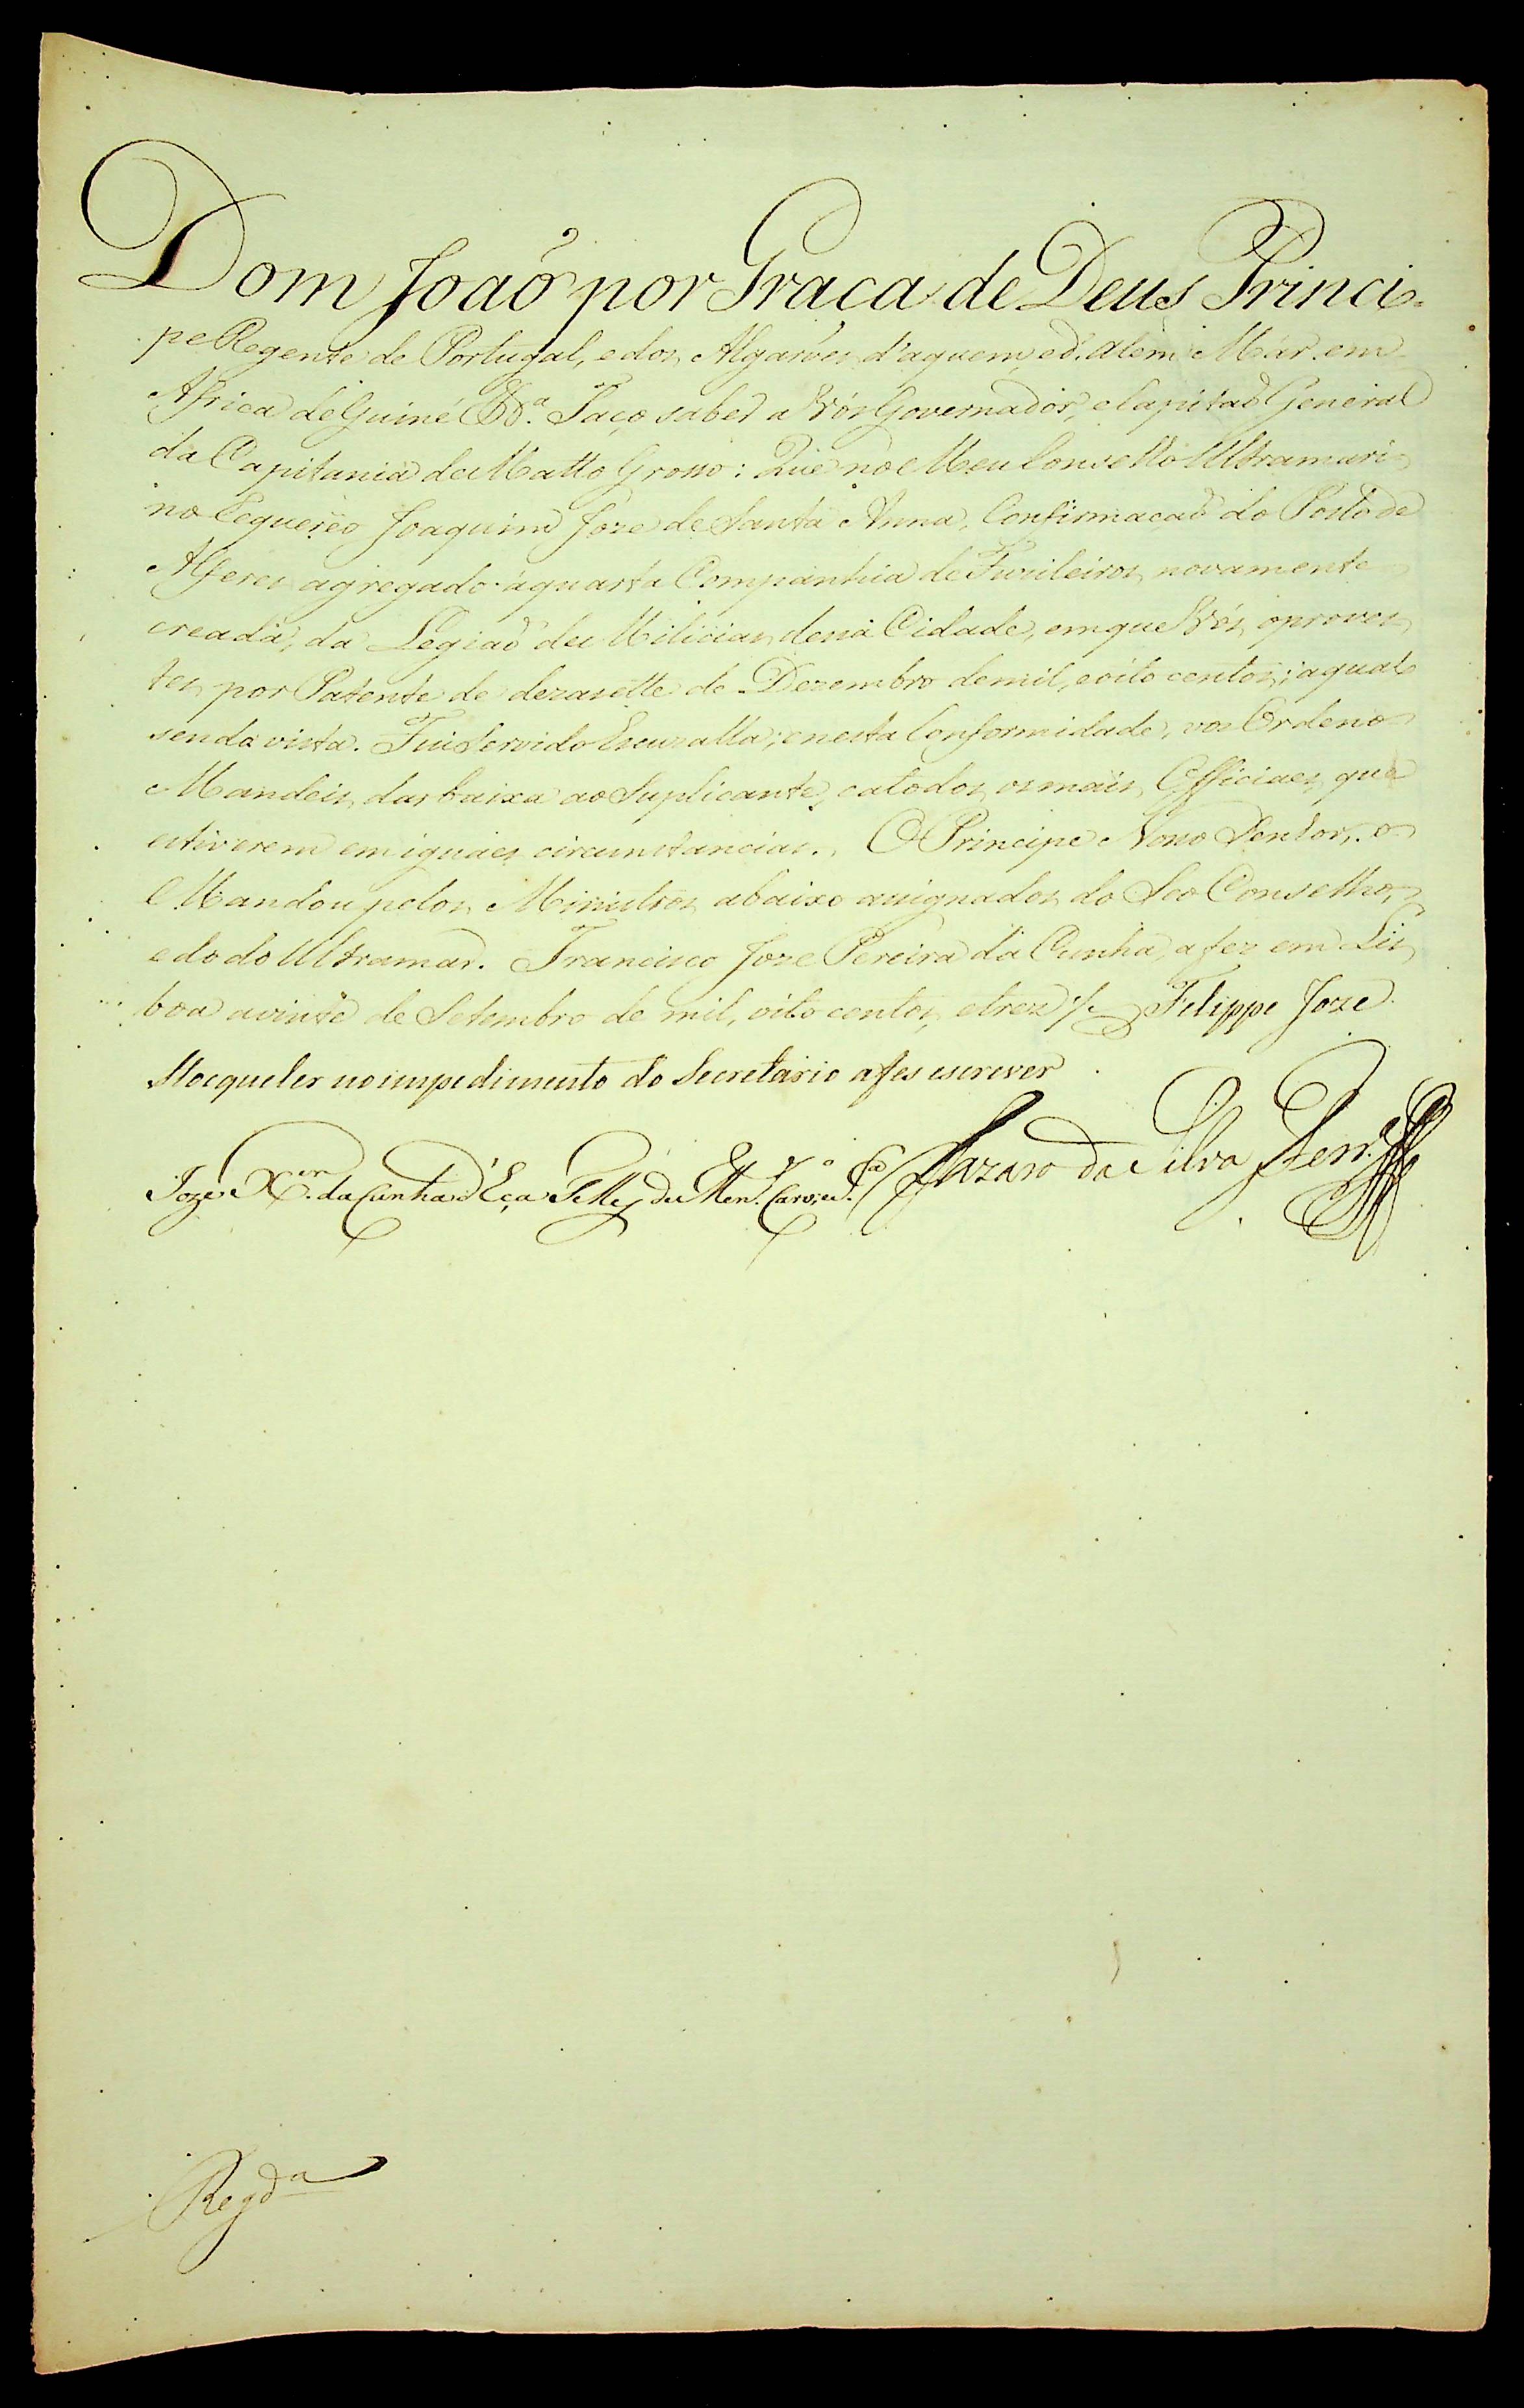 Dom Joaõ por Graça de Deus Princi-
pe Regente de Portugal, e dos Algarves d'aquem, e d'alem Mar em
Africa de Guiné &ª. Faço saber a Vós Governador, e Capitaõ General
da Capitania de Matto Grosso: Que no Meu Conselho Ultramari-
no Requereo Joaquim Joze de Santa Anna, Confirmaçaõ do Posto de
Alferes agregado á quarta Companhia de Fuzileiros novamente
creada, da Legiaõ de Milicias dessa Cidade, em que Vós, o proves-
tes por Patente de dezasette de Dezembro de mil, e oito centos; a qual
sendo vista. Fui Servido Escuzalla; e nesta Conformidade, vos Ordeno
Mandeis dar baixa ao Suplicante, e a todos os mais Officiaes que
estiverem em iguaes circunstancias. O Principe Nosso Senhor, o
Mandou pelos Ministros abaixo assignados do Seo Conselho,
e do do Ultramar. Francisco Joze Pereira da Cunha, a fez em Lis-
boa a vinte de Setembro de mil, oito centos, e trez Filippe Joze
Stocqueler no impedimento do Secretario a fes escrever
Joze X.er da Cunha d'Eça Telles de Men.es Carv.o e S.a Lazaro da Silva Ferr.a
Regd.a